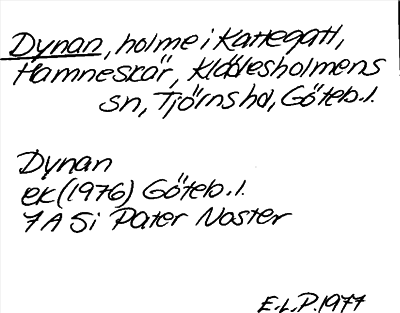 Dynan, holme i Kattegatt,
Hamneskär, Klädesholmens
sn, Tjörns hd, Göteb. l.
Dynan
ek (1976) Göteb. l.
7A 5i Pater Noster
E.L.P. 1977